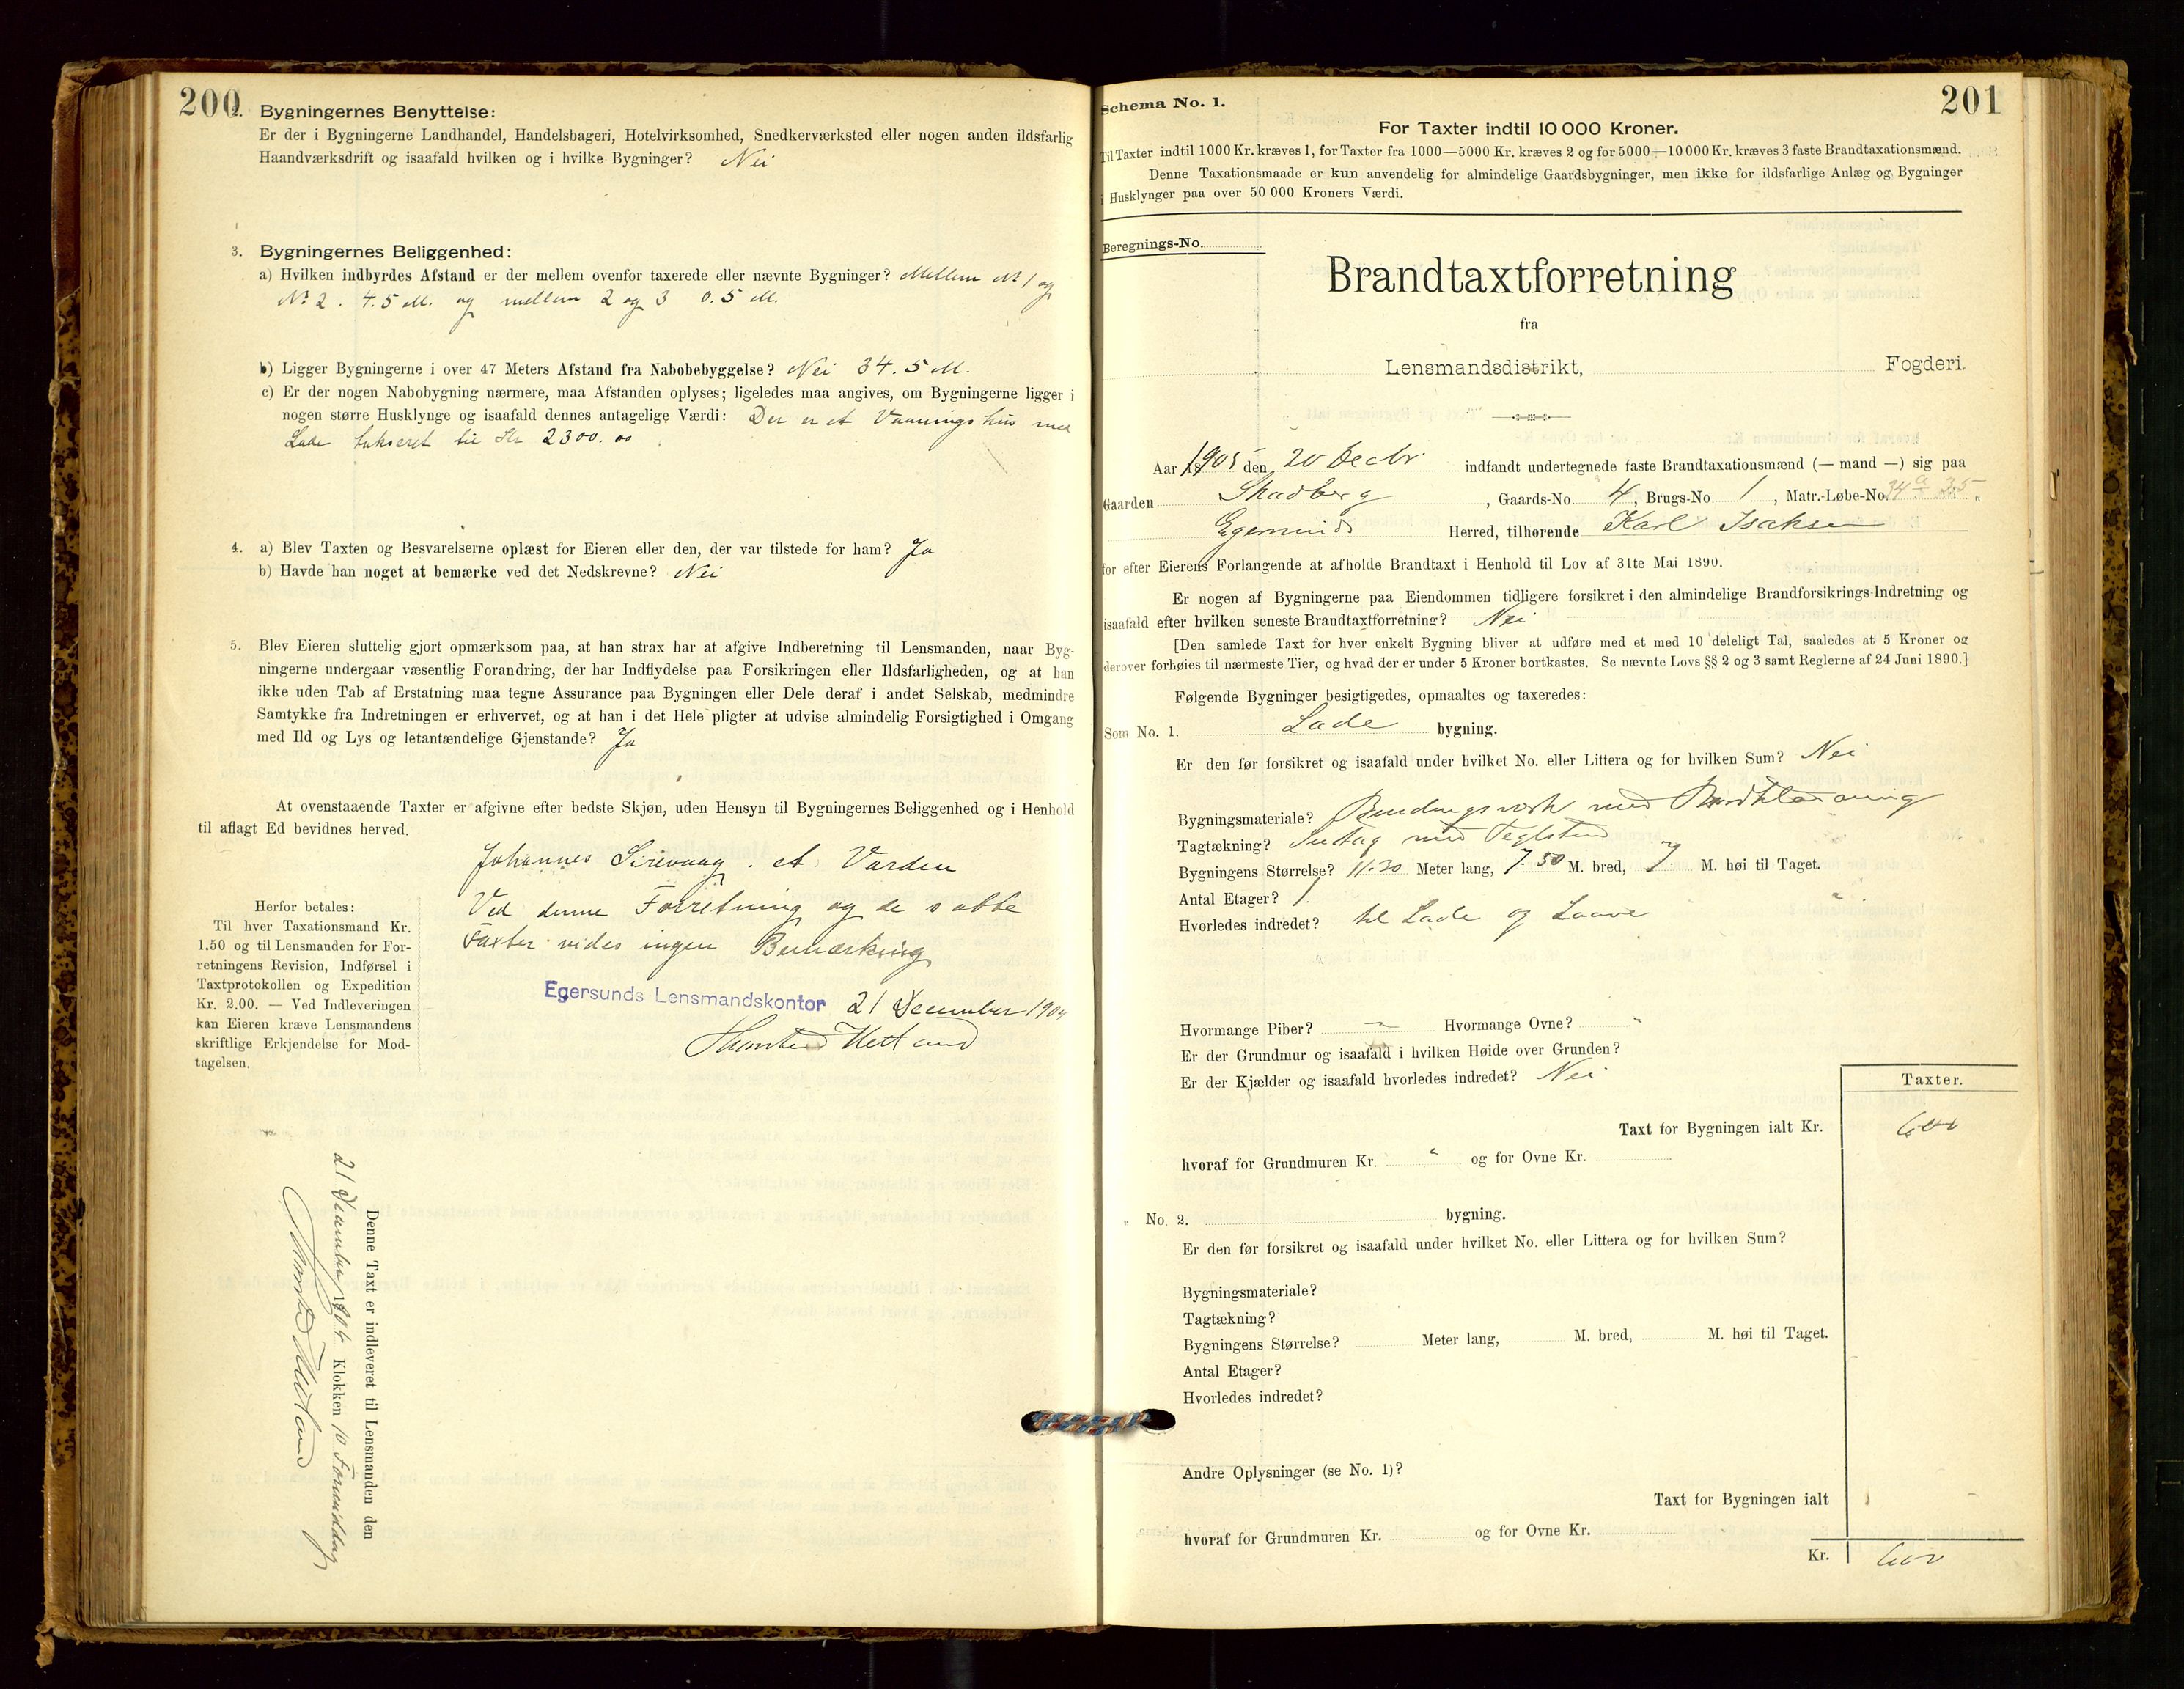 200
2. Bygningernes Benyttelse:
Er der i Bygningerne Landhandel, Handelsbageri, Hotelvirksomhed, Snedkerværksted eller nogen anden ildsfarlig
Haandværksdrift og isaafald hvilken og i hvilke Bygninger? Nei
3. Bygningernes Beliggenhed:
a) Hvilken indbyrdes Afstand er der mellem ovenfor taxerede eller nævnte Bygninger? Mellem No 1 og
No 2. 4.5 M. og mellem 2 og 3 0.5 M.
b) Ligger Bygningerne i over 47 Meters Afstand fra Nabobebyggelse? Nei 34.5 M.
c) Er der nogen Nabobygning nærmere, maa Afstanden oplyses; ligeledes maa angives, om Bygningerne ligger i
nogen større Husklynge og isaafald dennes antagelige Værdi: Der er et Vaaningshus med
Lade takseret til Kr 2300.00
4. a) Blev Taxten og Besvarelserne oplæst for Eieren eller den, der var tilstede for ham? Ja
b) Havde han noget at bemærke ved det Nedskrevne? Nei
5. Blev Eieren sluttelig gjort opmærksom paa, at han strax har at afgive Indberetning til Lensmanden, naar Byg-
ningerne undergaar væsentlig Forandring, der har Indflydelse paa Forsikringen eller Ildsfarligheden, og at han
ikke uden Tab af Erstatning maa tegne Assurance paa Bygningen eller Dele deraf i andet Selskab, medmindre
Samtykke fra Indretningen er erhvervet, og at han i det Hele pligter at udvise almindelig Forsigtighed i Omgang
med Ild og Lys og letantændelige Gjenstande? Ja
At ovenstaaende Taxter er afgivne efter bedste Skjøn, uden Hensyn til Bygningernes Beliggenhed og i Henhold
til aflagt Ed bevidnes herved.
Johannes Sirevaag. A Varden
Ved denne Forretning og de satte
Taxter vides ingen Bemærkning
Egersunds Lensmandskontor 21 December 1904
Hetland
Herfor betales:
Til hver Taxationsmand Kr.
1.50 og til Lensmanden for For-
retningens Revision, Indførsel i
Taxtprotokollen og Expedition
Kr. 2.00. — Ved Indleveringen
kan Eieren kræve Lensmandens
skriftlige Erkjendelse for Mod-
tagelsen.
Denne Taxt er indleveret til Lensmanden den
21 December 1904 Klokken 10 Formiddag
Hetland
201
Schema No. 1.
For Taxter indtil 10 000 Kroner.
Til Taxter indtil 1000 Kr. kræves 1, for Taxter fra 1000—5000 Kr. kræves 2 og for 5000—10 000 Kr. kræves 3 faste Brandtaxationsmænd.
Denne Taxationsmaade er kun anvendelig for almindelige Gaardsbygninger, men ikke for ildsfarlige Anlæg og Bygninger
i Husklynger paa over 50 000 Kroners Værdi.
Beregnings-No.
Brandtaxtforretning
fra
Lensmandsdistrikt, Fogderi.
Aar 1905 den 20 Decbr indfandt undertegnede faste Brandtaxationsmænd (— mand —) sig paa
Gaarden Skadberg, Gaards-No. 4, Brugs-No 1, Matr.-Løbe-No. 34a 35
Egersunds Herred, tilhørende Karl Isaksen
for efter Eierens Forlangende at afholde Brandtaxt i Henhold til Lov af 31te Mai 1890.
Er nogen af Bygningerne paa Eiendommen tidligere forsikret i den almindelige Brandforsikrings-Indretning og
isaafald efter hvilken seneste Brandtaxtforretning? Nei
[Den samlede Taxt for hver enkelt Bygning bliver at udføre med et med 10 deleligt Tal, saaledes at 5 Kroner og
derover forhøies til nærmeste Tier, og hvad der er under 5 Kroner bortkastes. Se nævnte Lovs §§ 2 og 3 samt Reglerne af 24 Juni 1890.]
Følgende Bygninger besigtigedes, opmaaltes og taxeredes:
Som No. 1. Lade bygning.
Er den før forsikret og isaafald under hvilket No. eller Littera og for hvilken Sum? Nei
Bygningsmateriale? Bindingsværk med Bordklædning
Tagtækning? Sutag med Teglsten
Bygningens Størrelse? 11.30 Meter lang, 7.50 M. bred, 7 M. høi til Taget.
Antal Etager? 1.
Hvorledes indredet? til Lade og Laave
Hvormange Piber? " Hvormange Ovne? "
Er der Grundmur og isaafald i hvilken Høide over Grunden?
Er der Kjælder og isaafald hvorledes indredet? Nei
Taxter.
Taxt for Bygningen ialt Kr. 600
hvoraf for Grundmuren Kr. " og for Ovne Kr.
" No. 2. bygning.
Er den før forsikret og isaafald under hvilket No. eller Littera og for hvilken Sum?
Bygningsmateriale?
Tagtækning?
Bygningens Størrelse? Meter lang, M. bred, M. høi til Taget.
Antal Etager?
Hvorledes indredet?
Andre Oplysninger (se No. 1)?
Taxt for Bygningen ialt
hvoraf for Grundmuren Kr. og for Ovne Kr.
Kr. 600